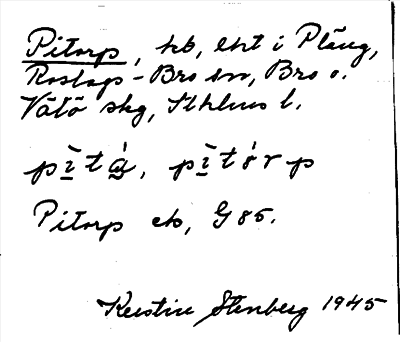 Pitorp, hb, eht i Plång,
Roslags-Bro sn, Bro o.
Vätö skg, Sthlms l.
pìtá, pìtórp
Pitorp eb, G 85.
Kerstin Stenberg 1945